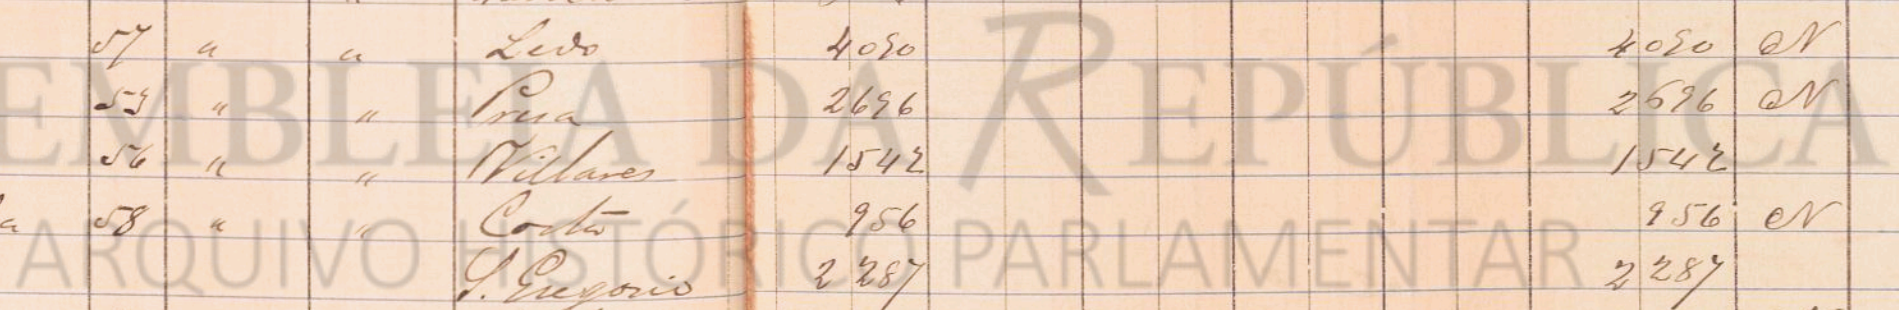 57 " " Ledo 4090 4090 N
53 " " Presa 2696 2696 N
56 " " Villares 1542 1542
a 58 " " Costa 956 956 N
S. Gregorio 2287 2287
EMBLEIA DA REPÚBLICA
ARQUIVO HISTÓRICO PARLAMENTAR